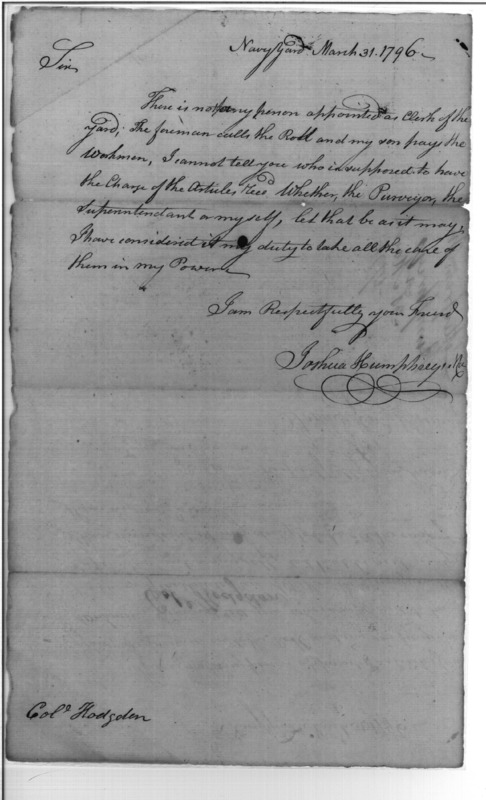 Navy Yard March 31. 1796
Sir
There is not any person appointed as Clerk of the
Yard; The foreman calls the Roll and my son pays the
Workmen, I cannot tell you who is supposed to have
the Charge of the Articles Recd Whether, the Purveyor, the
Superintendant or myself, let that be as it may,
I have considered it my duty to take all the care of
them in my Power
I am Respectfully your Friend
Joshua Humphreys
Colo Hodgdon